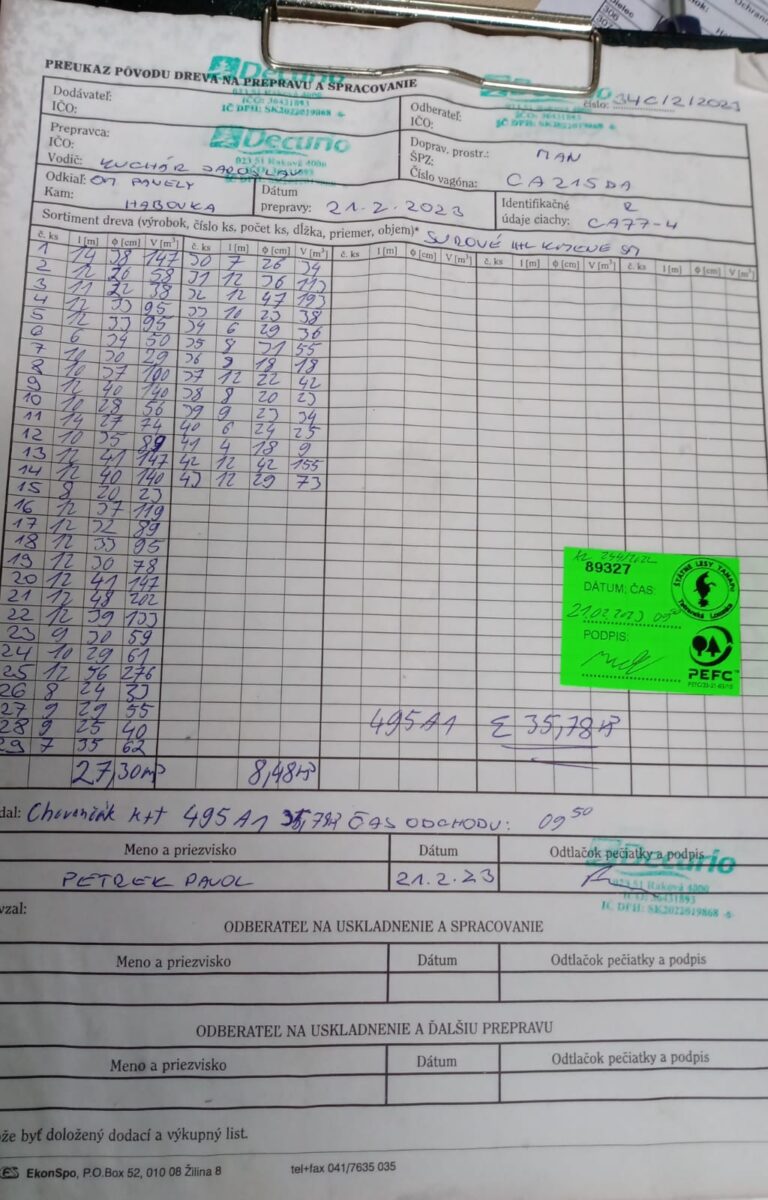 PREUKAZ PÔVODU DREVA NA PREPRAVU A SPRACOVANIE
Decurio
023 51 Raková 4000
IČO: 36431893
IČ DPH: SK2022019868
číslo: 340/2/2023
Dodávateľ:
IČO:
Odberateľ:
IČO:
Prepravca:
IČO:
Vodič: KUCHÁR JAROSLAV
Decurio
023 51 Raková 4000
IČO: 36431893
IČ DPH: SK2022019868
Doprav. prostr.: MAN
ŠPZ:
Číslo vagóna: CA215DA
Odkiaľ: OM PAVELY
Kam: HABOVKA
Dátum
prepravy: 21.2.2023
Identifikačné
údaje ciachy: CA77-4
Sortiment dreva (výrobok, číslo ks, počet ks, dĺžka, priemer, objem)* SUROVÉ
č. ks l [m] ϕ [cm] V [m³] č. ks l [m] ϕ [cm] V [m³] č. ks l [m] ϕ [cm] V [m³] č. ks l [m] ϕ [cm] V [m³] č. ks l [m] ϕ [cm] V [m³]
1 14 38 147 30 7 26 34
2 12 26 58 31 12 36 113
3 11 22 38 32 12 47 193
4 12 33 95 33 10 23 38
5 12 33 95 34 6 29 36
6 6 34 50 35 8 31 55
7 10 20 29 36 9 18 18
8 10 37 100 37 12 22 42
9 12 40 140 38 8 20 23
10 10 28 56 39 9 23 34
11 14 27 74 40 6 24 25
12 10 35 89 41 4 18 9
13 12 41 147 42 12 42 155
14 12 40 140 43 12 29 73
15 8 20 23
16 12 37 119
17 12 32 89
18 12 33 95
19 12 30 78
20 12 41 147
21 12 48 202
22 12 39 133
23 9 30 59
24 10 29 61
25 12 56 276
26 8 24 33
27 9 29 55
28 9 25 40
29 7 35 62
27,30m³ 8,48m³
495A1 Σ 35,78m³
89327
DÁTUM; ČAS:
21.02.2023
PODPIS:
ŠTÁTNE LESY TANAPu
Tatranská Lomnica
PEFC™
dal: Chovančák 495A1 35,78 ČAS ODCHODU: 09 50
Meno a priezvisko Dátum Odtlačok pečiatky a podpis
PETREK PAVOL 21.2.23
Decurio
023 51 Raková 4000
IČO: 36431893
IČ DPH: SK2022019868
vzal:
ODBERATEĽ NA USKLADNENIE A SPRACOVANIE
Meno a priezvisko Dátum Odtlačok pečiatky a podpis
ODBERATEĽ NA USKLADNENIE A ĎALŠIU PREPRAVU
Meno a priezvisko Dátum Odtlačok pečiatky a podpis
že byť doložený dodací a výkupný list.
EkonSpo, P.O.Box 52, 010 08 Žilina 8 tel+fax 041/7635 035